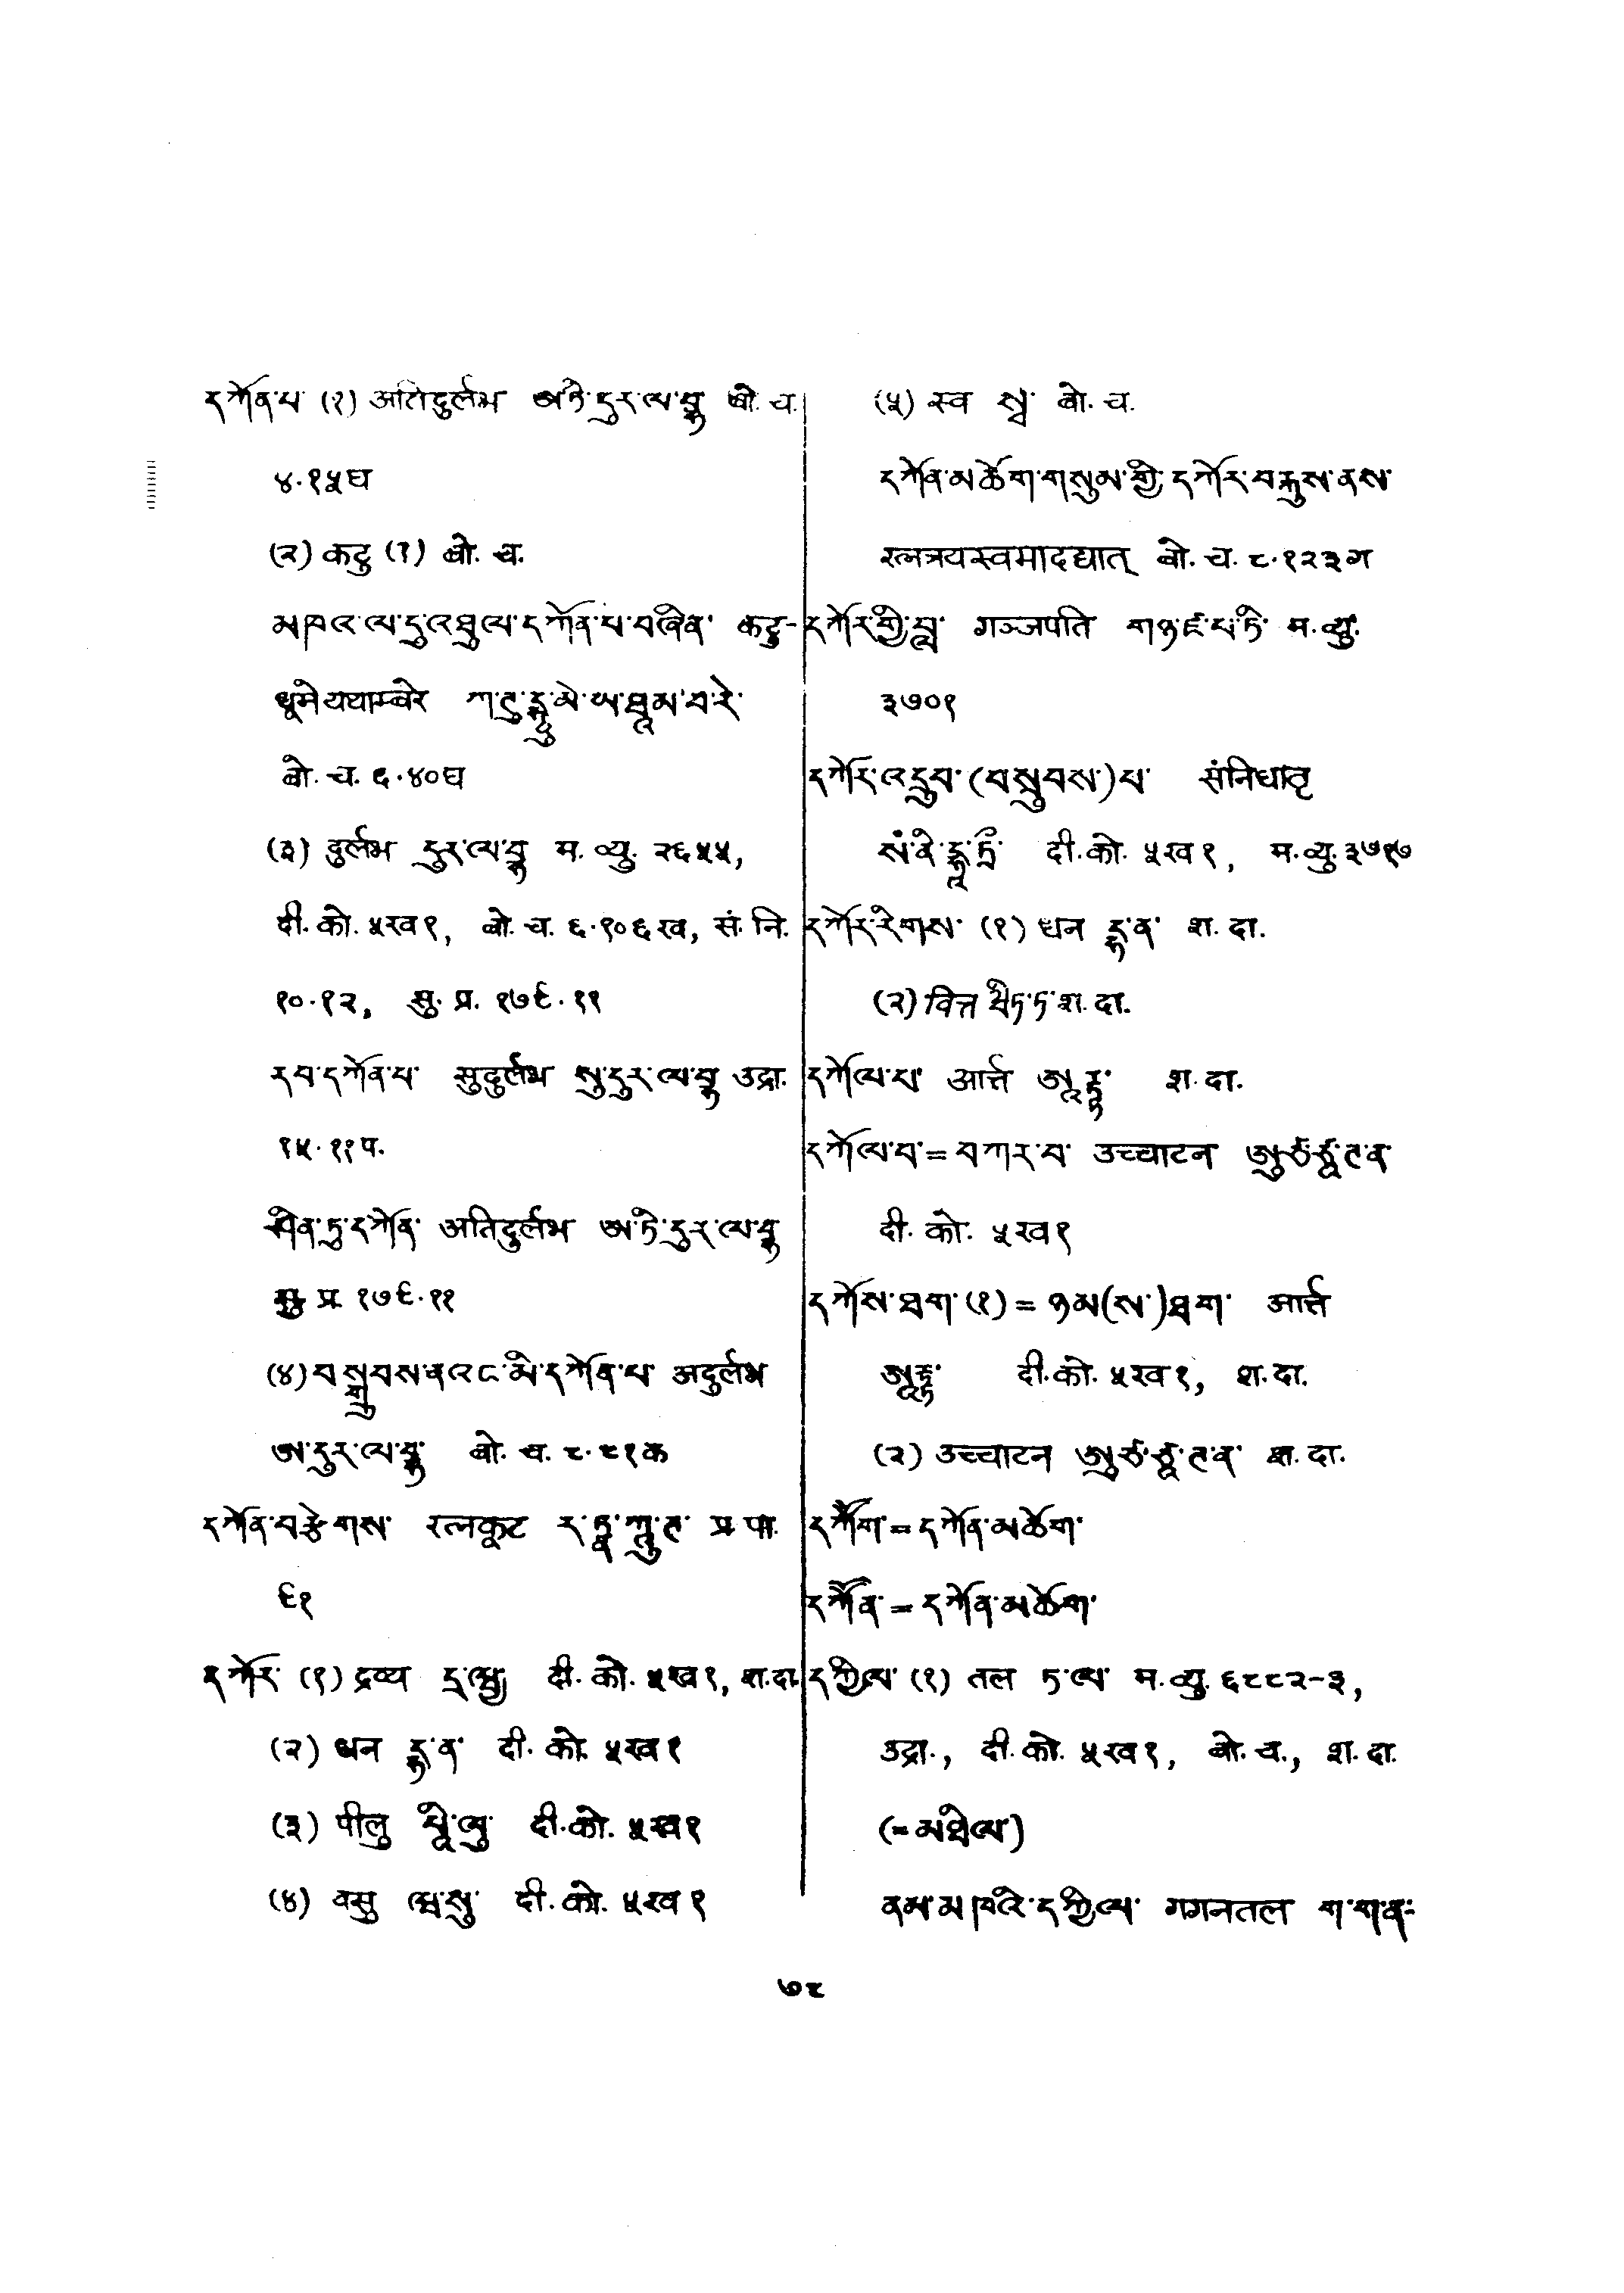 དཀོན་པ་ (१) अतिदुर्लभ ཨ་ཏི་དུར་ལ་བྷ बो. च.
४.१५घ
(२) कटु (१) बो. च.
མཁའ་ལ་དུ་འཐུལ་དཀོན་པ་བཞིན་ कटु-
धूमे यथाम्बरे ཀ་ཊུ་དྷཱུ་མེ་ཡ་ཐཱམ་བ་རེ་
बो. च. ६.४०घ
(३) दुर्लभ དུར་ལ་བྷ म. व्यु. २६५५,
दी. को. ५ख१, बो. च. ६.१०६ख, सं. नि.
१०.१२, सु. प्र. १७९.११
རབ་དཀོན་པ་ सुदुर्लभ སུ་དུར་ལ་བྷ उद्रा.
१५.११प.
ཤིན་ཏུ་དཀོན་ अतिदुर्लभ ཨ་ཏི་དུར་ལ་བྷ
सु प्र १७९.११
(४) བསྒྲུབས་ནའང་མི་དཀོན་པ་ अदुर्लभ
ཨ་དུར་ལ་བྷ་ बो. च. ८.९१क
དཀོན་བརྩེགས་ रत्नकूट ར་ཏྣ་ཀཱུ་ཊ་ प्र पा.
९१
དཀོར་ (१) द्रव्य དྲ་ཝྱ दी. को. ५ख१, श. दा.
(२) धन དྷ་ན་ दी. को. ५ख१
(३) पीलु པཱི་ལུ दी. को. ५ख१
(४) वसु ཝ་སུ་ दी. को. ५ख१
(५) स्व སྭ་ बो. च.
དཀོན་མཆོག་གསུམ་གྱི་དཀོར་བརྐུས་ནས་
रत्नत्रयस्वमादद्यात् बो. च. ८.१२३ग
དཀོར་གྱི་བླ་ गञ्जपति གཉྫ་པ་ཏི་ म. व्यु.
३७०१
དཀོར་འདྲུབ་(བསྲུབས་)པ་ संनिधातृ
སཾ་ནི་དྷཱ་ཏྲྀ་ दी. को. ५ख१, म. व्यु. ३७१७
དཀོར་རིགས་ (१) धन དྷ་ན་ श. दा.
(२) वित्त ཝིཏ་ཏ་ श. दा.
དཀོལ་པ་ आर्त्त ཨཱརྟྟ་ श. दा.
དཀོལ་བ་ = བཀར་བ་ उच्चाटन ཨུཙྩཱ་ཊ་ན་
दी. को. ५ख१
དཀོས་ཐག་ (१) = ཉམ(ས་)ཐག་ आर्त्त
ཨཱརྟྟ་ दी. को. ५ख१, श. दा.
(२) उच्चाटन ཨུཙྩཱ་ཊ་ན་ श. दा.
དཀོག་ = དཀོན་མཆོག་
དཀོན་ = དཀོན་མཆོག་
དཀྱིལ་ (१) तल ཏ་ལ་ म. व्यु. ६८८२-३,
उद्रा., दी. को. ५ख१, बो. च., श. दा.
(= མཐིལ་)
ནམ་མཁའི་དཀྱིལ་ गगनतल ག་ག་ན-
७८